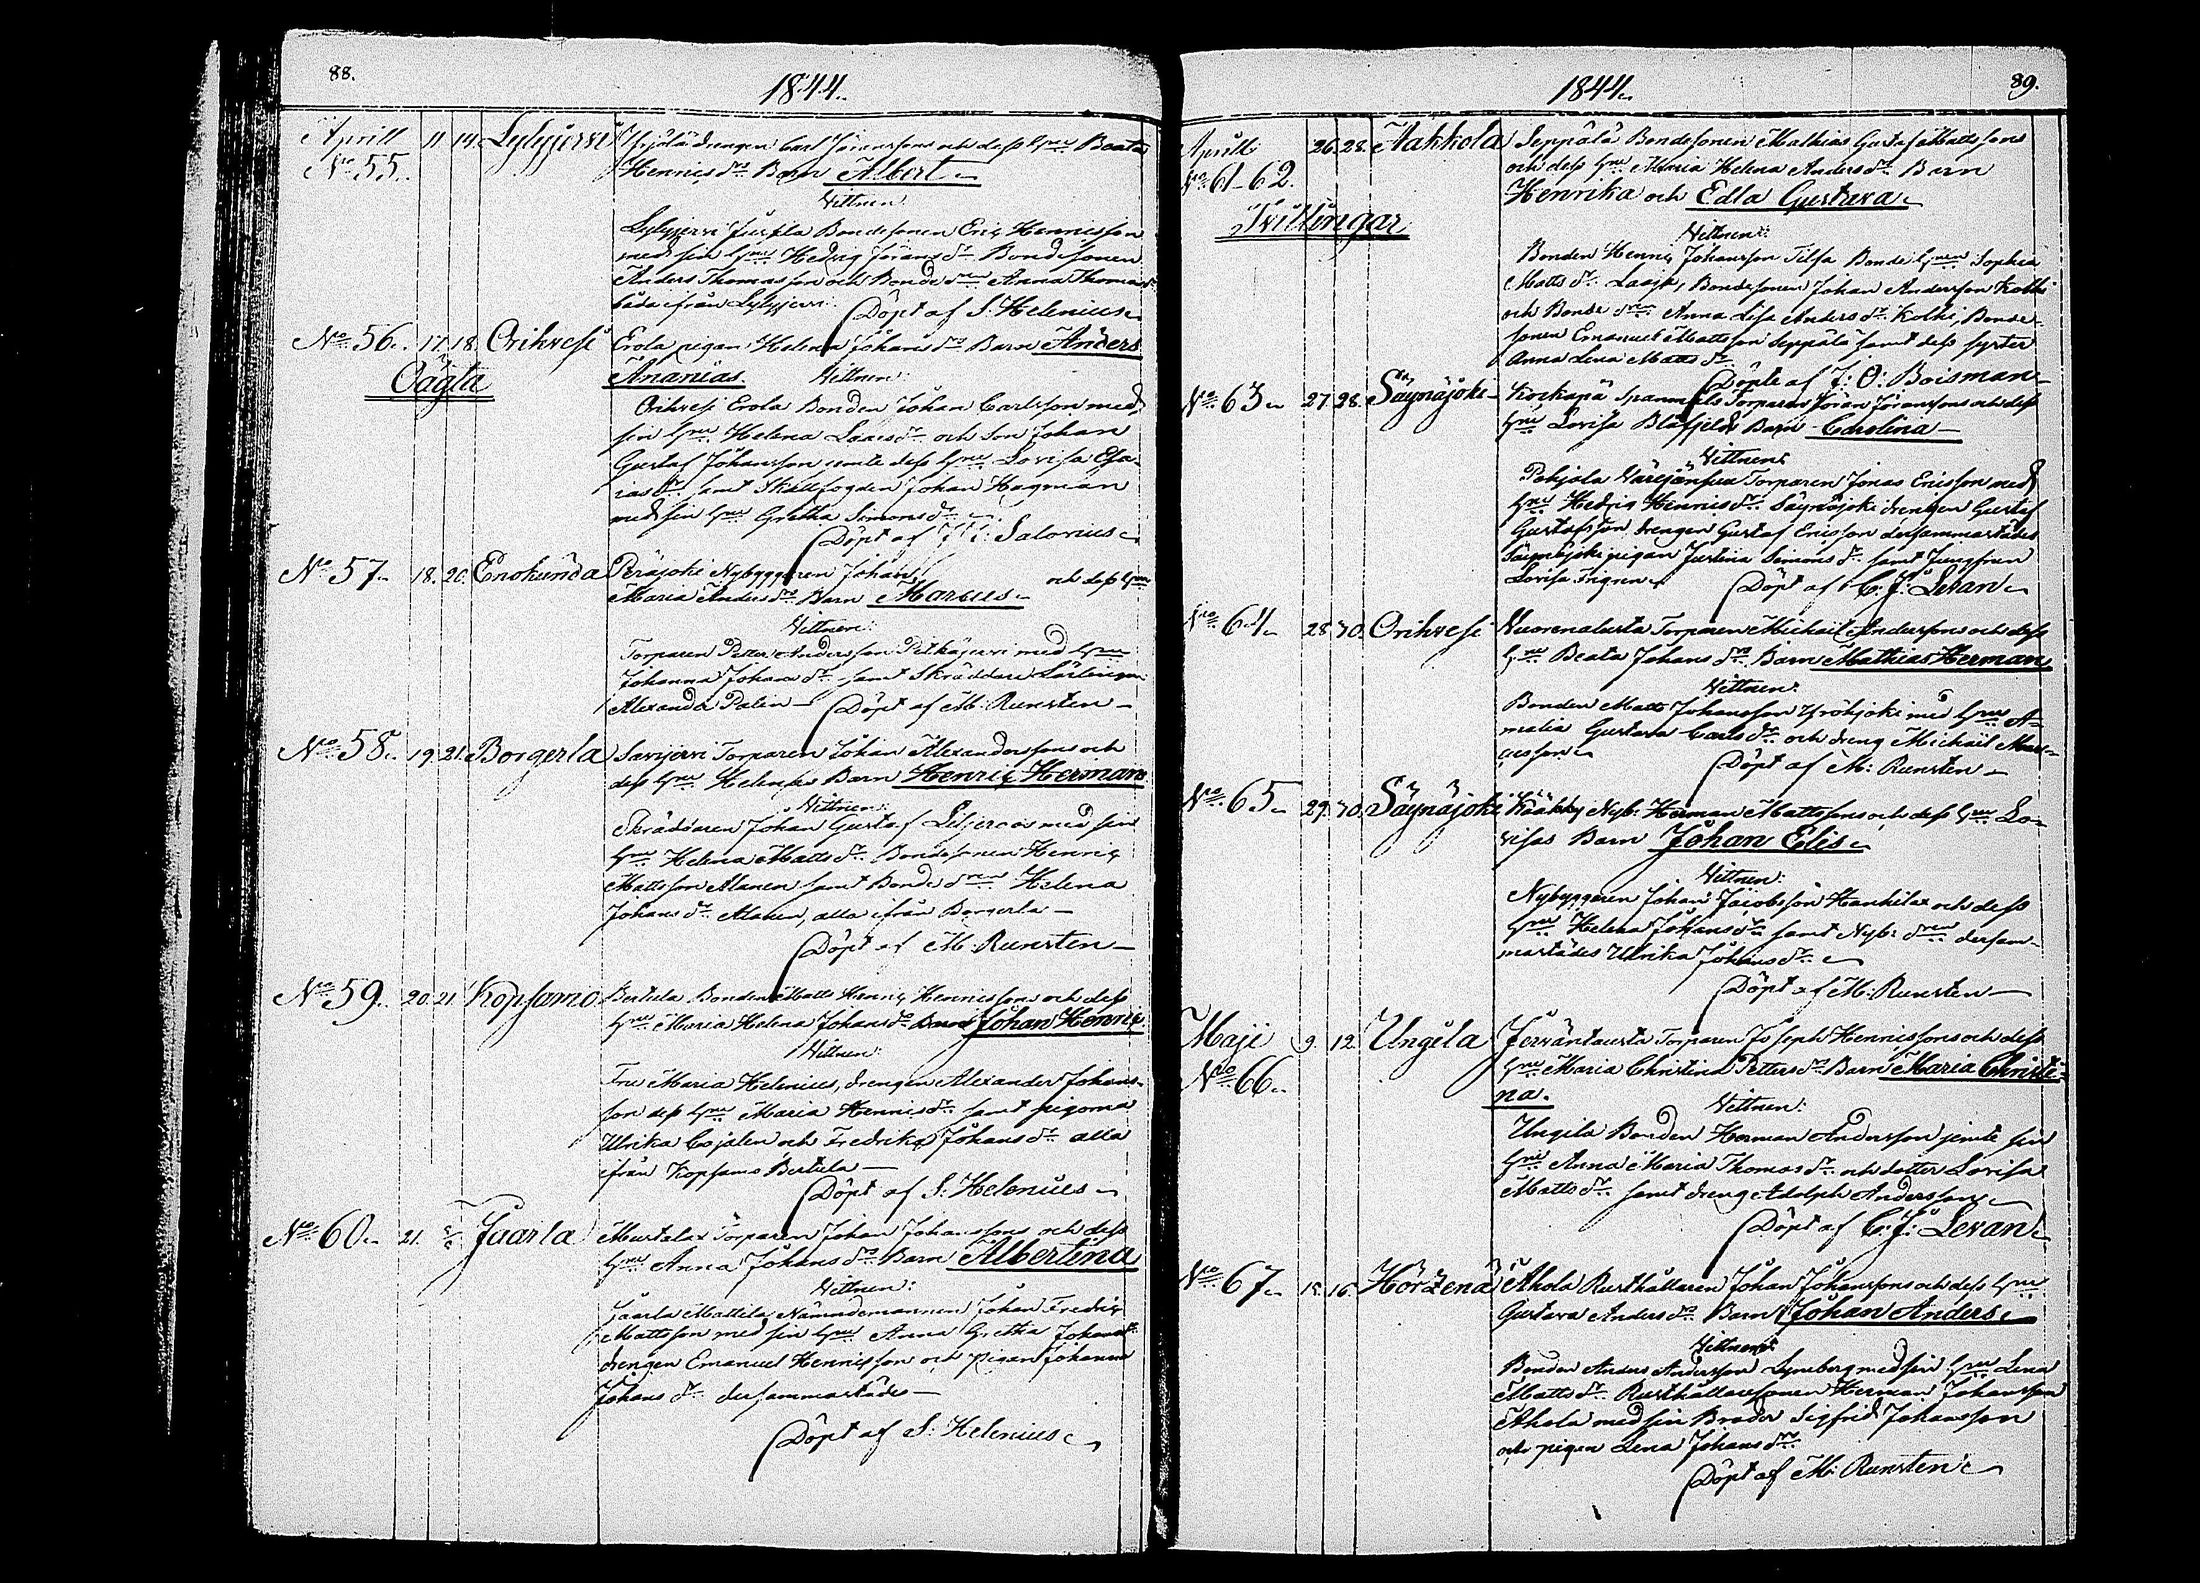 88.
1844.
Aprill 11 14. Lylyjerwi Yrjölä drengen Carl Göranssons och dess Hru Beata
No 55. Hennis dr Barn Albert
Vittnen:
Lylyjerwi Jussila Bondesonen Eric Hennisson
med sin Hru Hedvig Görans dr Bondesonen
Anders Thomasson och Bonde dren Anna Thomas dr
båda ifrån Lylyjerwi. Döpt af S: Helenius
No 56. 17. 18. Orihvesi Erola pigan Helena Johans drs Barn Anders
Oägta Ananias. Vittnen:
Orihvesi Erola Bonden Johan Carlsson med
sin Hru Helena Lars dr och Son Johan
Gustaf Johansson jemte dess Hru Lovisa Esa-
ias dr samt Skallfogden Johan Hagman
med sin Hru Gretha Simons dr
Döpt af Salonius
No 57 18. 20. Enokunda Peräjoki Nybyggaren Johans och dess Hru
Maria Anders drs Barn Marcus
Vittnen:
Torparen Petter Andersson Pitkäjerwi med Hru
Johanna Johans dr samt Skräddare Lärlingen
Alexander Palin Döpt af M: Runsten
No 58. 19. 21. Borgerla Savijerwi Torparen Johan Alexanderssons och
dess Hru Helenas Barn Henric Herman
Vittnen:
Skräddaren Johan Gustaf Liljeroos med sin
Hru Helena Matts dr Bondesonen Henric
Mattsson Alanen samt Bonde dren Helena
Johans dr Alanen, alla ifrån Borgerla
Döpt af M: Runsten
No 59. 20. 21. Kopsamo Bertula Bonden Matts Henric Hennissons och dess
Hru Maria Helena Johans drs Barn Johan Henric
Vittnen:
Fru Maria Helenius, drengen Alexander Johans-
son dess Hru Maria Hennis dr samt pigorna
Ulrika Cajalen och Fredrika Johans dr alla
ifrån Kopsamo Bertula
Döpt af S: Helenius
No 60. 21. Jaarla Murtalax Torparen Johan Johanssons och dess
Hru Anna Johans drs Barn Albertina
Vittnen:
Jaarla Mattila Nämndemannen Johan Fredric
Mattsson med sin Hru Anna Gretha Johans dr
drengen Emanuel Hennisson och pigan Johanna
Johans dr dersammastädes
Döpt af S: Helenius
89.
1844.
Aprill 26. 28. Aakkola Seppälä Bondesonen Mathias Gustaf Mattssons
No 61-62. och dess Hru Maria Helena Anders drs Barn
Henrika och Edla Gustava
Tvillingar
Vittnen:
Bonden Henric Johansson Tilsa Bonde Hrun Sophia
Matts dr Laajk, Bondesonen Johan Andersson Kolhi
och Bonde dren Anna Lisa Anders dr Kolhi, Bonde-
sonen Emanuel Mattsson Seppälä samt dess syster
Anna Lena Matts dr
Döpte af J: O: Boisman
No 63. 27. 28. Säynäjoki Korkapä Spannmåls Torparen Jöran Jöranssons och dess
Hru Lovisa Blåfjelds Barn Carolina
Vittnen:
Pohjola Torparen Jonas Ericsson med
Hru Hedvig Hennis dr Säynäjoki drengen Gustaf
Gustafsson drengen Gustaf Ericsson dersammastädes
Säynäjoki pigan Justina Simons dr samt Jungfrun
Lovisa Frigren Döpt af C: J: Levan
No 64. 28. 30. Orihvesi Vuorenalusta Torparen Michaël Anderssons och dess
Hru Beata Johans drs Barn Mathias Herman
Vittnen:
Bonden Matts Johansson Yröhjoki med Hru A-
malia Gustava Carls dr och dreng Michaël Mar-
cusson
Döpt af M: Runsten
No 65. 29. 30. Säynäjoki Nyb: Herman Mattssons och dess Hru Lo-
visas Barn Johan Elis
Vittnen:
Nybyggaren Johan Jacobsson Hankilax och dess
Hru Helena Johans dr samt Nyb: dren dersam-
mastädes Ulrika Johans dr
Döpt af M: Runsten
Maji 9. 12. Ungila Jerväntausta Torparen Joseph Hennissons och dess
No 66. Hru Maria Christina Petters drs Barn Maria Christi-
na.
Vittnen:
Ungila Bonden Herman Andersson jemte sin
Hru Anna Maria Thomas dr och dotter Lovisa
Matts dr samt dreng Adolph Andersson
Döpt af C: J: Levan
No 67. 15. 16. Hörtzenä Ahola Rusthållaren Johan Johanssons och dess Hru
Gustava Anders drs Barn Johan Anders
Vittnen:
Bonden Anders Andersson Lyneborg med sin Hru Lena
Matts dr Rusthållaresonen Herman Johansson
Ahola med sin Broder Sigfrid Johansson
och pigan Lena Johans dr
Döpt af M: Runsten